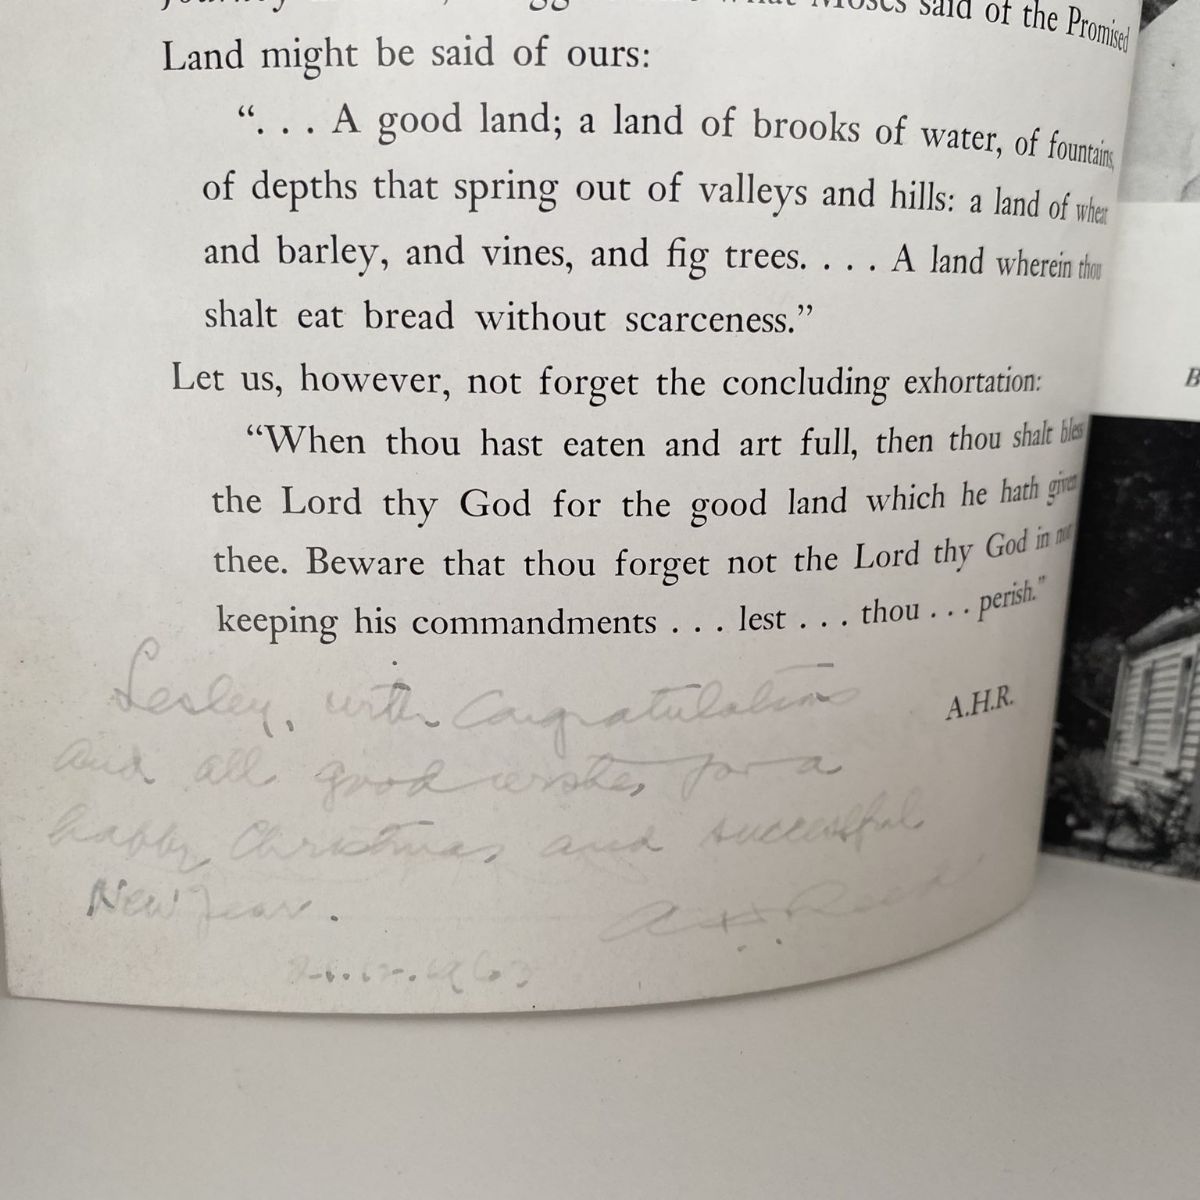 Moses said of the Promised
Land might be said of ours:
“. . . A good land; a land of brooks of water, of fountains,
of depths that spring out of valleys and hills: a land of wheat
and barley, and vines, and fig trees. . . . A land wherein thou
shalt eat bread without scarceness.”
Let us, however, not forget the concluding exhortation:
“When thou hast eaten and art full, then thou shalt bless
the Lord thy God for the good land which he hath given
thee. Beware that thou forget not the Lord thy God in not
keeping his commandments . . . lest . . . thou . . . perish.”
A.H.R.
Lesley, with Congratulations
and all good wishes for a
happy Christmas and successful
New Year.
A H Reed
B